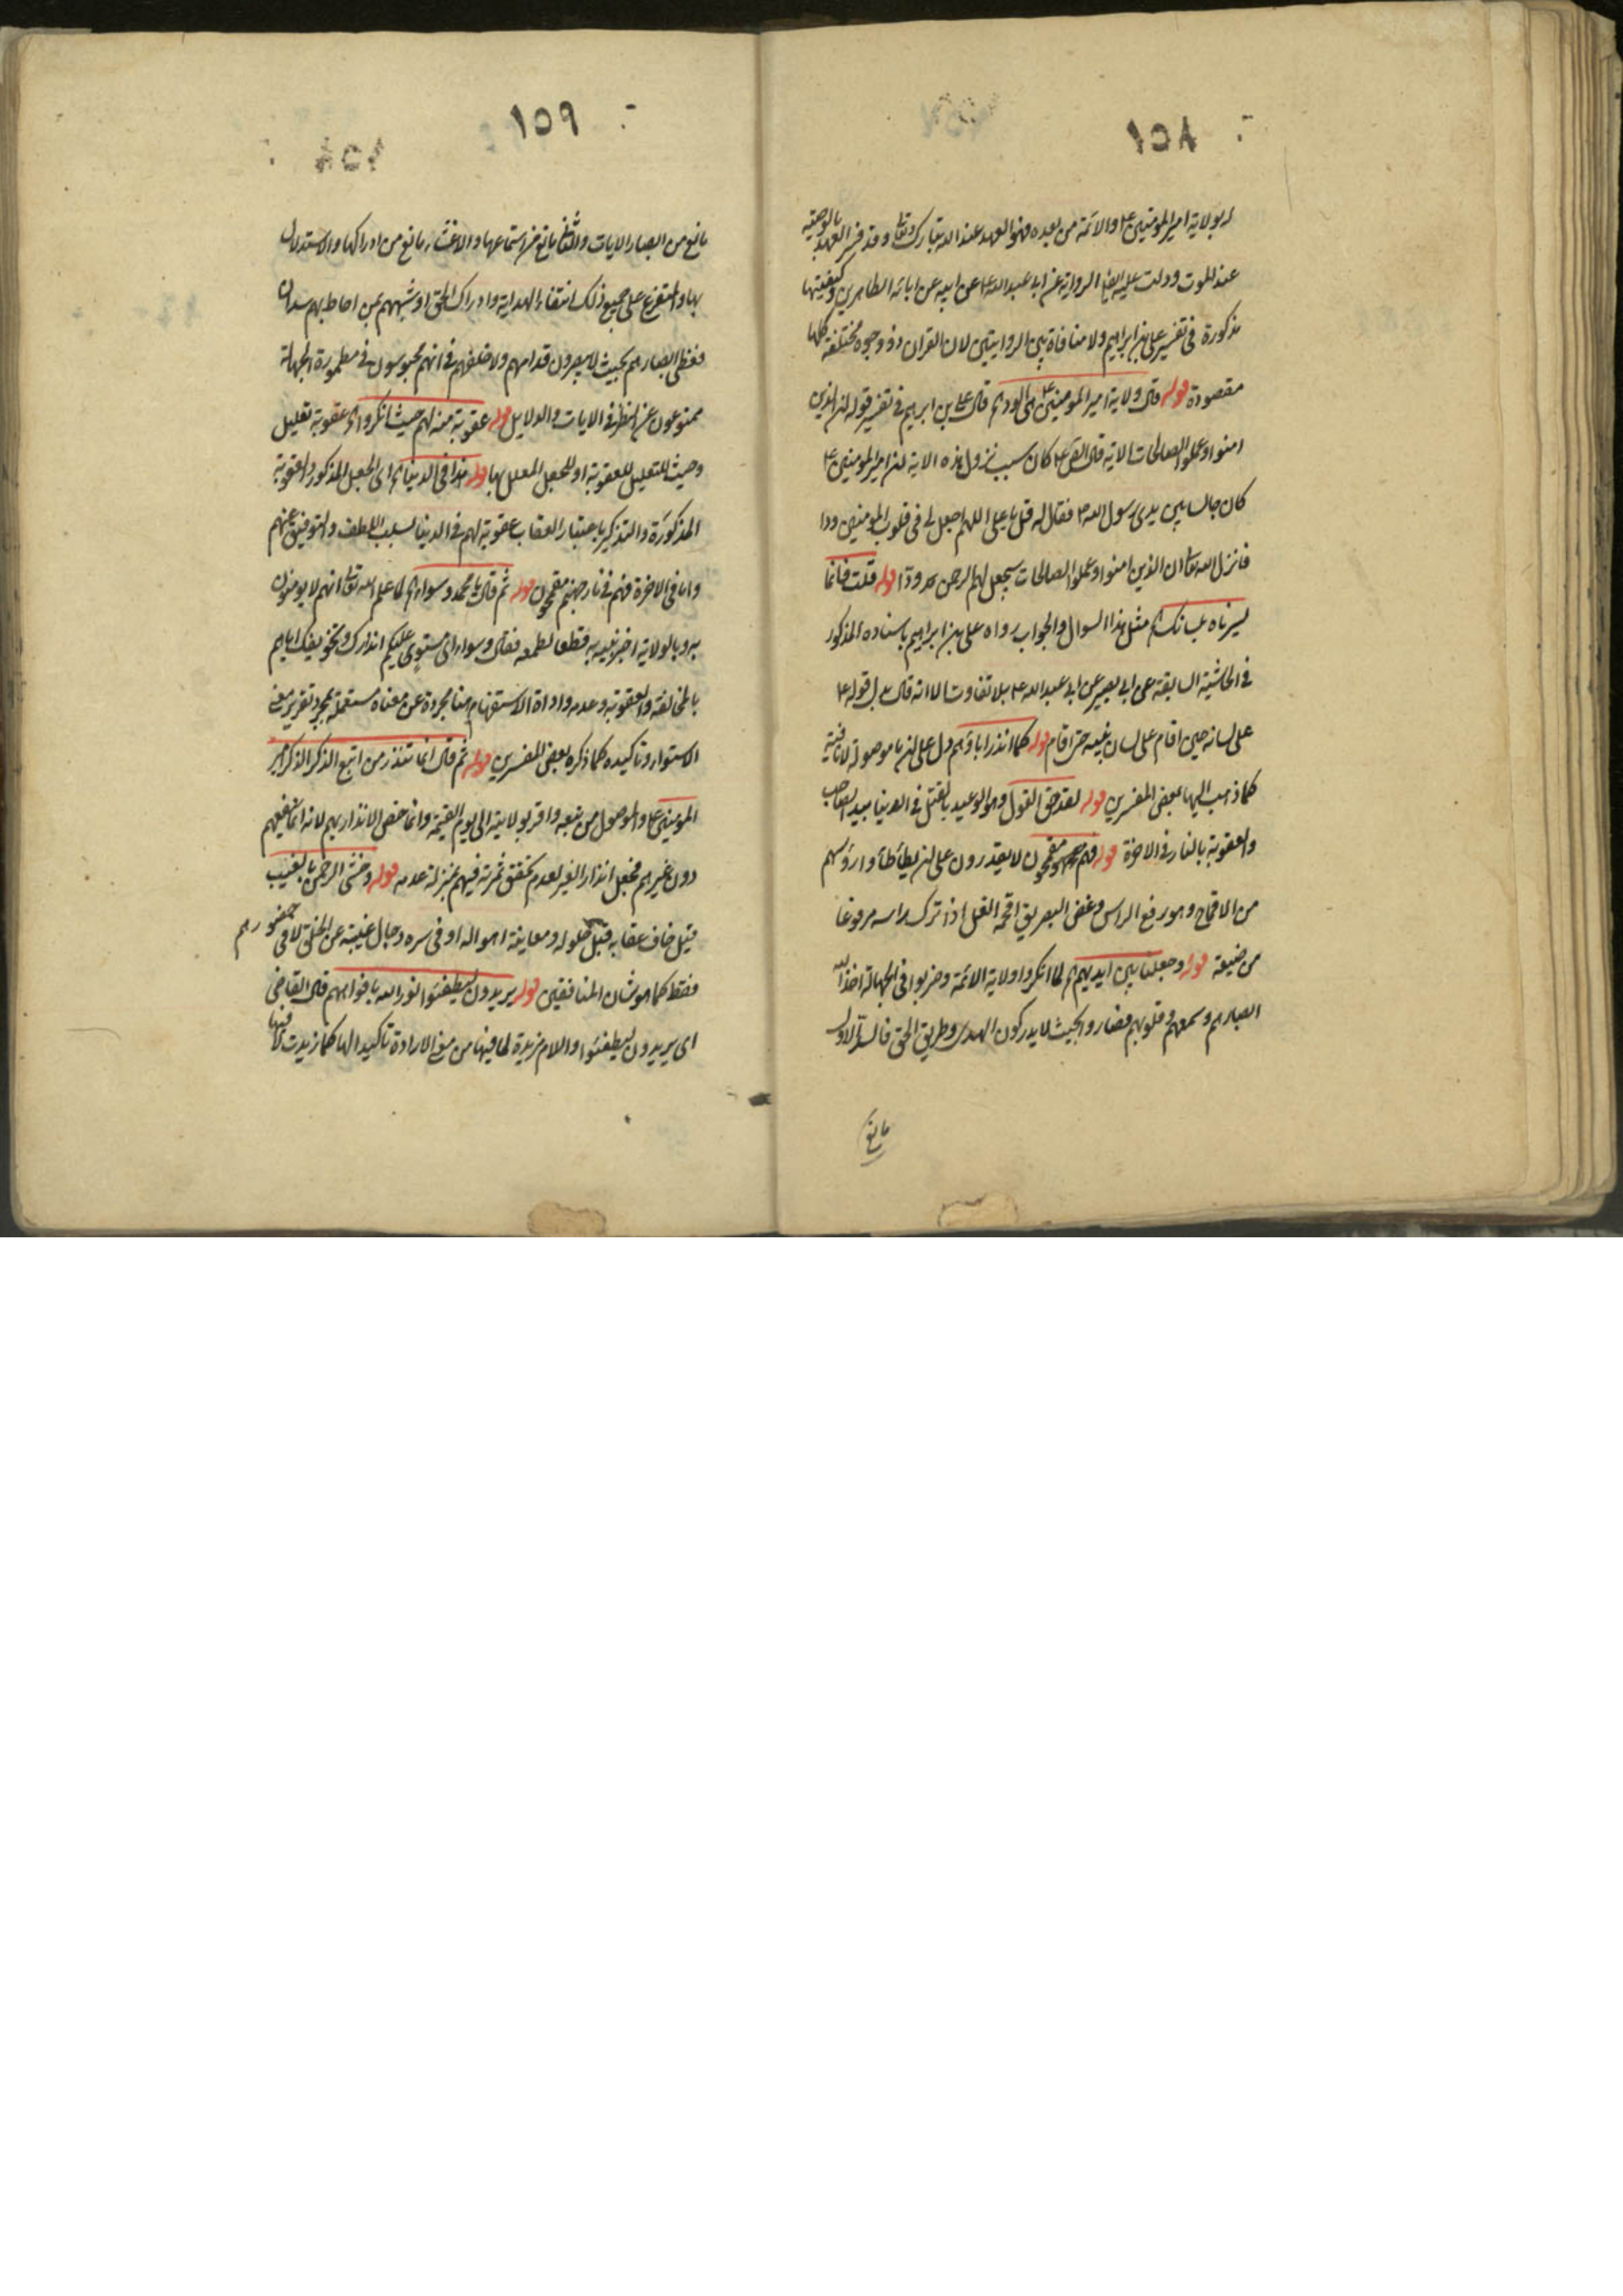 ١٥٨
له بولاية امير المؤمنين ع والائمة من بعده فهو العهد عند الله تبارك وتعالى وقد فسر العهد بالوصية
عند الموت ودلت عليه ايضا الرواية عن ابي عبد الله ع عن ابيه عن ابائه الطاهرين وكيفيتها
مذكورة في تفسير علي بن ابراهيم ولا منافاة بين الروايتين لان القران ذو وجوه مختلفة كلها
مقصودة قوله قال ولاية امير المؤمنين ع هي الود اه قال علي بن ابراهيم في تفسير قوله ان الذين
امنوا وعملوا الصالحات الاية قال الص ع كان سبب نزول هذه الاية ان امير المؤمنين ع
كان جالسا بين يدي رسول الله ص فقال له قل يا علي اللهم اجعل لي في قلوب المؤمنين ودا
فانزل الله تعالى ان الذين امنوا وعملوا الصالحات سيجعل لهم الرحمن ودا قوله قلت فانما
يسرناه بلسانك اه مثل هذا السوال والجواب رواه علي بن ابراهيم باسناده المذكور
في الحاشية السابقة عن ابي بصير عن ابي عبد الله ع بلا تفاوت الا انه قال بدل قوله ع
على لسانه حين اقام على لسان نبيه حتى اقام قوله كما انذر اباؤهم دل على ان ما موصولة لا نافية
كما ذهب اليها بعض المفسرين قوله لقد حق القول وهو الوعيد بالقتل في الدنيا بيد الصاحب
والعقوبة بالنار في الاخرة قوله فهم مقمحون لا يقدرون على ان يطأطأوا رؤسهم
من الاقماح وهو رفع الراس وغض البصر يق اقمحه الغل اذا ترك راسه مرفوعا
من ضيقه قوله وجعلنا بين ايديهم اه لما انكروا ولاية الائمة وضربوا في الجهالة اخذ الله
ابصارهم وسمعهم وقلوبهم فصاروا بحيث لا يدركون الهدى وطريق الحق فالسد الاول
مانع
١٥٩
مانع من ابصار الايات والثاني مانع من استماعها والاغشاء مانع من ادراكها والاستدلال
بها والمتفرع على جميع ذلك انتفاء الهداية وادراك الحق او شبههم بمن احاط بهم سدان
فغطى ابصارهم بحيث لا يبصرون قدامهم ولا خلفهم في انهم محبوسون في مطمورة الجهالة
ممنوعون عن النظر في الايات والدلايل قوله عقوبة منه لهم حيث انكروا اه عقوبة تعليل
وحيث للتعليل للعقوبة او للجعل المعلل بها قوله هذا في الدنيا اه اي الجعل المذكور او العقوبة
المذكورة والتذكير باعتبار العقاب عقوبة لهم في الدنيا لسلب اللطف والتوفيق عنهم
واما في الاخرة فهم في نار جهنم مقمحون قوله ثم قال يا محمد وسواء اه لما علم الله تعالى انهم لا يومنون
به وبالولاية اخبر نبيه به قطعا لطمعه فقال وسواء اي مستوي عليكم انذارك وتخويفك اياهم
بالمخالفة والعقوبة وعدمه واداة الاستفهام هنا مجردة عن معناه مستعملة لمجرد تقرير معنى
الاستواء وتاكيده كما ذكره بعض المفسرين قوله ثم قال انما تنذر من اتبع الذكر الذكر امير
المومنين ع والموصول من تبعه واقر بولايته الى يوم القيمة وانما خص الانذار بهم لانه انما ينفعهم
دون غيرهم فجعل انذار الغير لعدم تحقق ثمرته فيهم بمنزلة عدمه قوله وخشي الرحمن بالغيب
قيل خاف عقابه قبل حلوله ومعاينة اهواله او في سره وحال غيبته عن الخلق لا في حضورهم
فقط كما هو شان المنافقين قوله يريدون ليطفئوا نور الله بافواههم قال القاضي
اي يريدون ليطفئوا واللام مزيدة لما فيها من معنى الارادة تاكيدا لها كما زيدت لما فيها